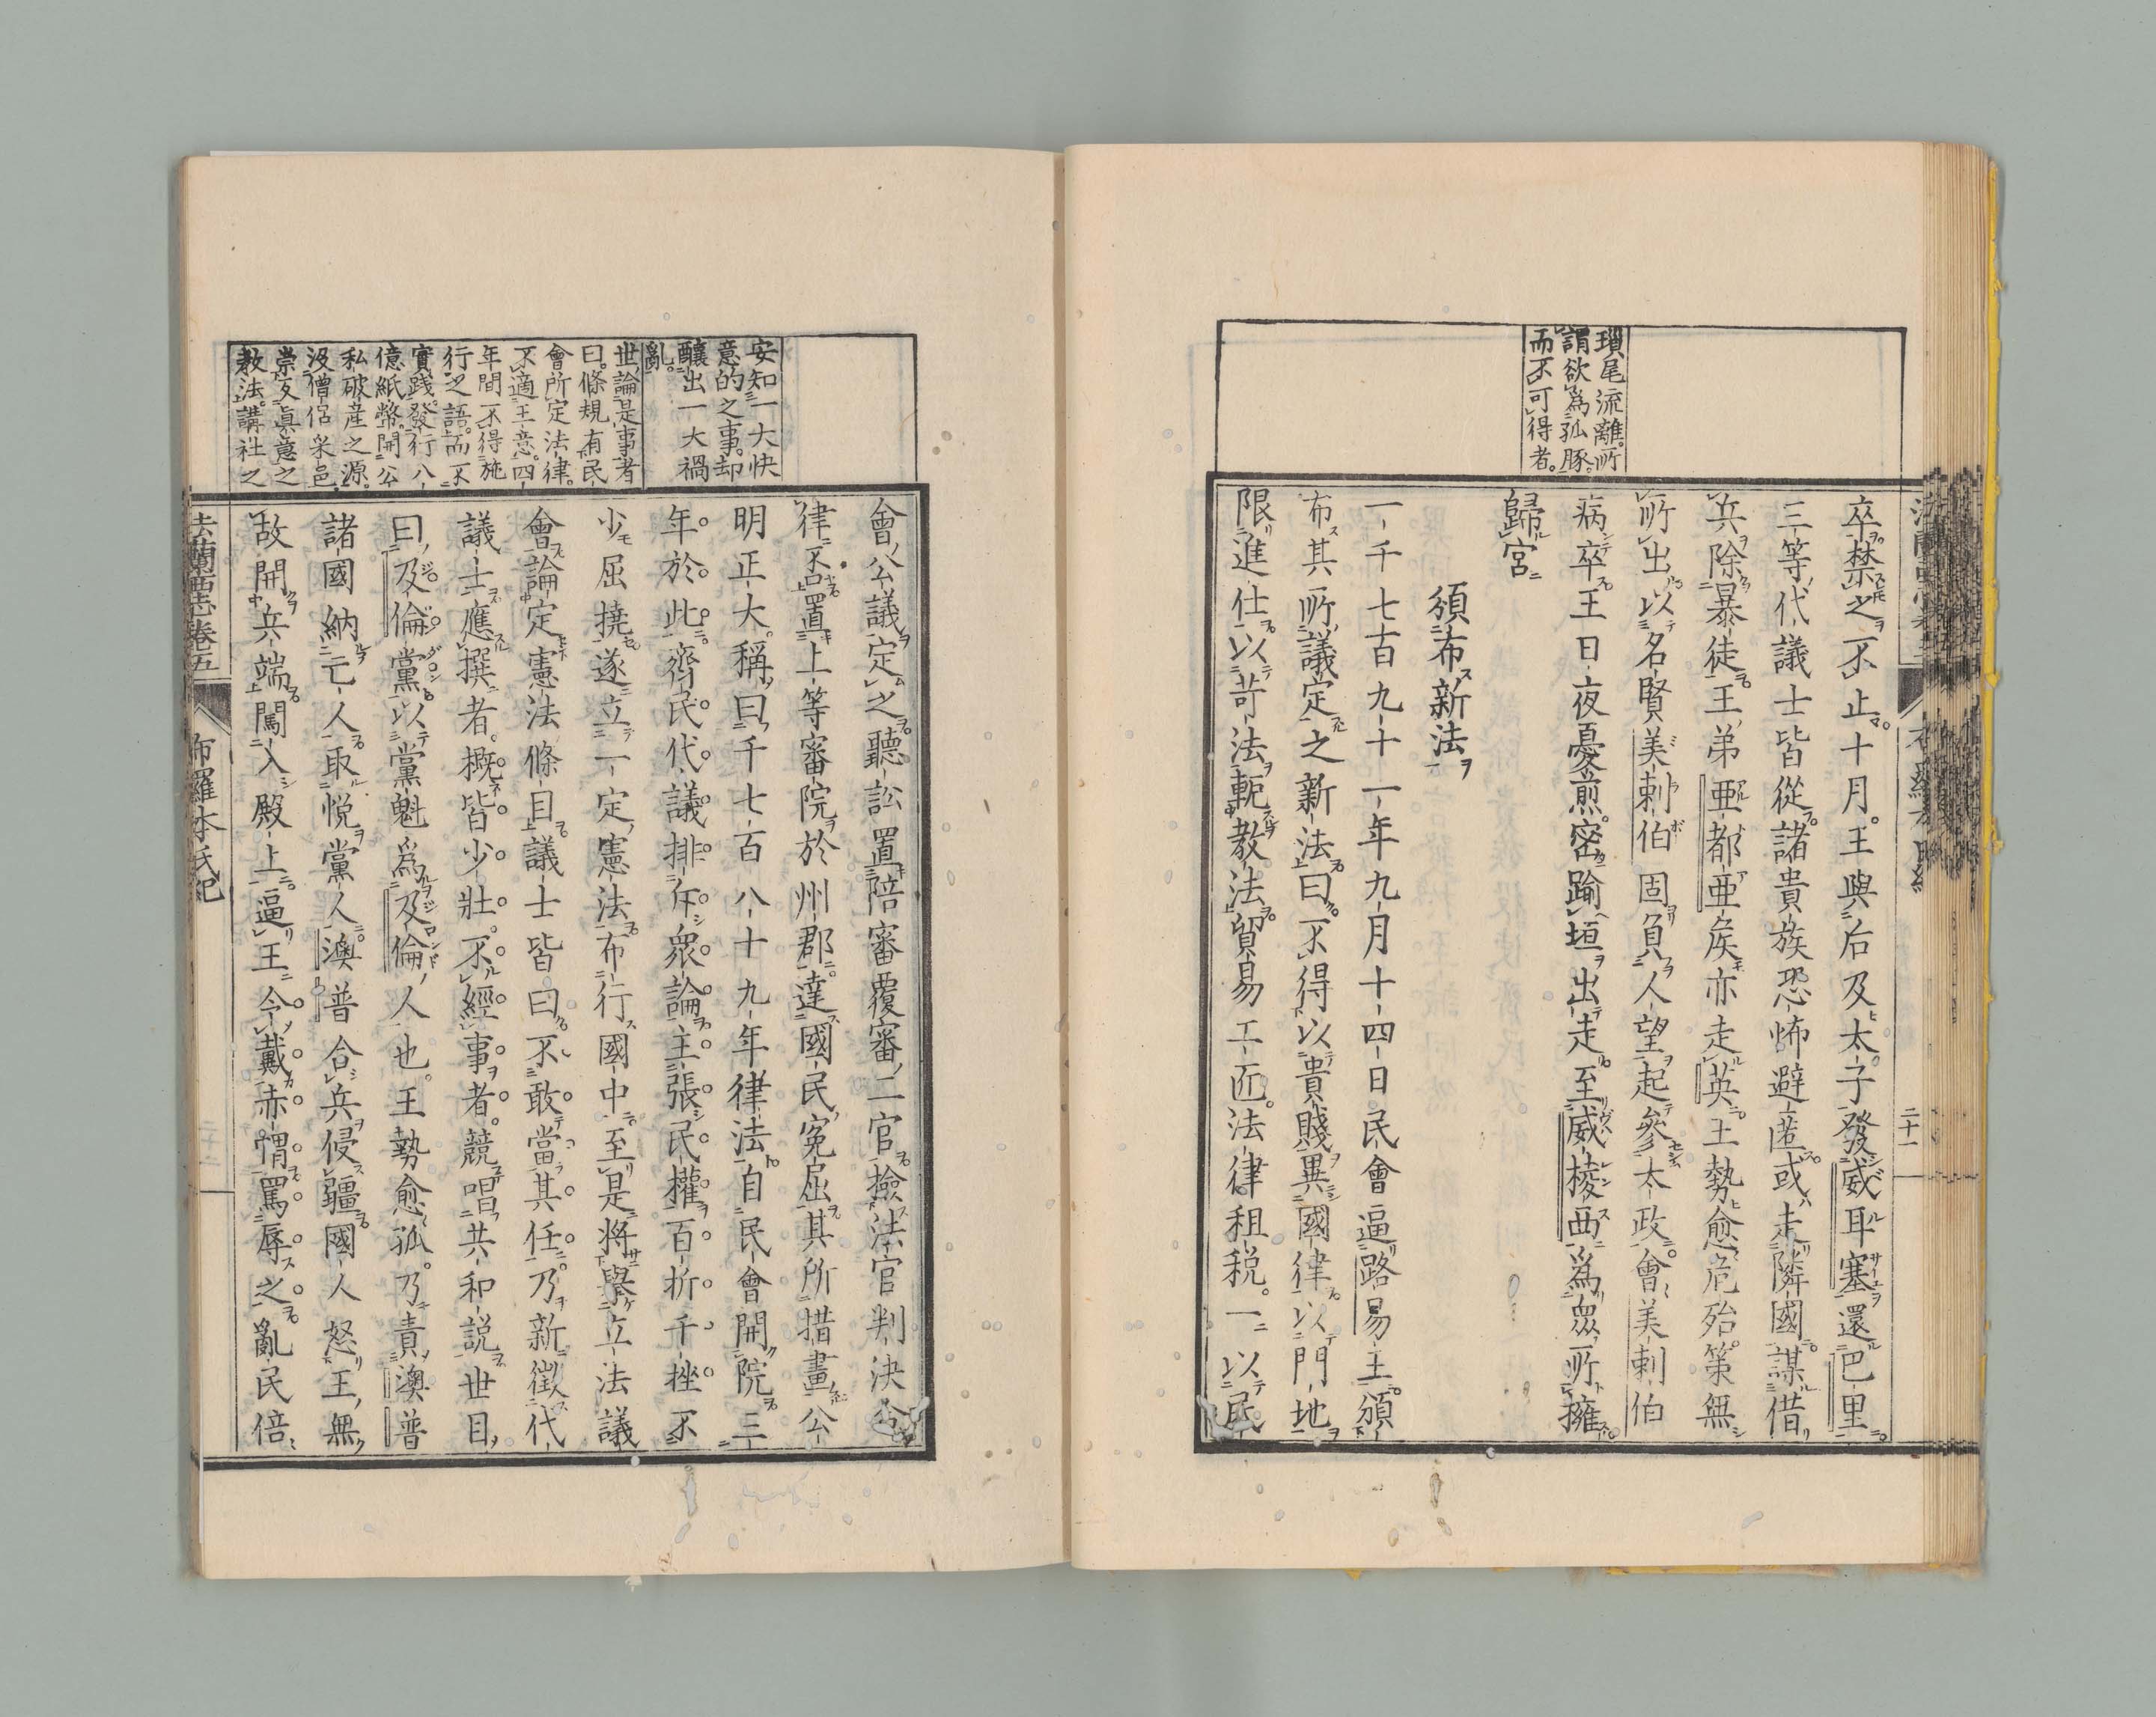 瑣尾流離。所
謂欲為孤豚。
而不可得者。
卒禁之不止十月。王與后及太子發威耳塞還巴里
三等代議士皆從諸貴族恐怖避匿或走隣國謀借
兵除暴徒王弟亜都亜矦亦走英王勢愈危殆。策無
所出以名賢美剌伯固負人望起參太政會美剌伯
病卒王日夜憂煎密踰垣出走至威棱西為眾所擁
歸宮
頒布新法
一千七百九十一年九月十四日民會逼路易王頒
布其所議定之新法曰不得以貴賤異國律以門地
限進仕以苛法軛教法貿易工匠。法律租税。一以民
二十一
安知一大快
意的之事。却
釀出一大禍
亂。
世論是事者
曰。條規有民
會所定法律。
不適王意。四
年間不得施
行之語。而不
實践。發行八
億紙幣。開公
私破産之源。
没僧侶釆邑。
崇反眞意之
教法。講社之
會公議定之聽訟置陪審覆審二官撿法官判決合
律否置上等審院於州郡達國民冤屈其所措畫公
明正大。稱曰千七百八十九年律法自民會開院三
年於此齊民代議排斥眾論主張民權百折千挫不
少屈撓遂立一定憲法布行國中至是將擧立法議
會論定憲法條目議士皆曰不敢當其任乃新徴代
議士應撰者。概皆少壯。不經事者。競唱共和説世目
曰及倫黨以黨魁為及倫人也。王勢愈孤。乃責澳普
諸國納亡人取悦黨人澳普合兵侵疆國人怒王無
故開兵端闖入殿上逼王令戴赤帽罵辱之亂民倍
法蘭西志卷五
布羅本氏紀